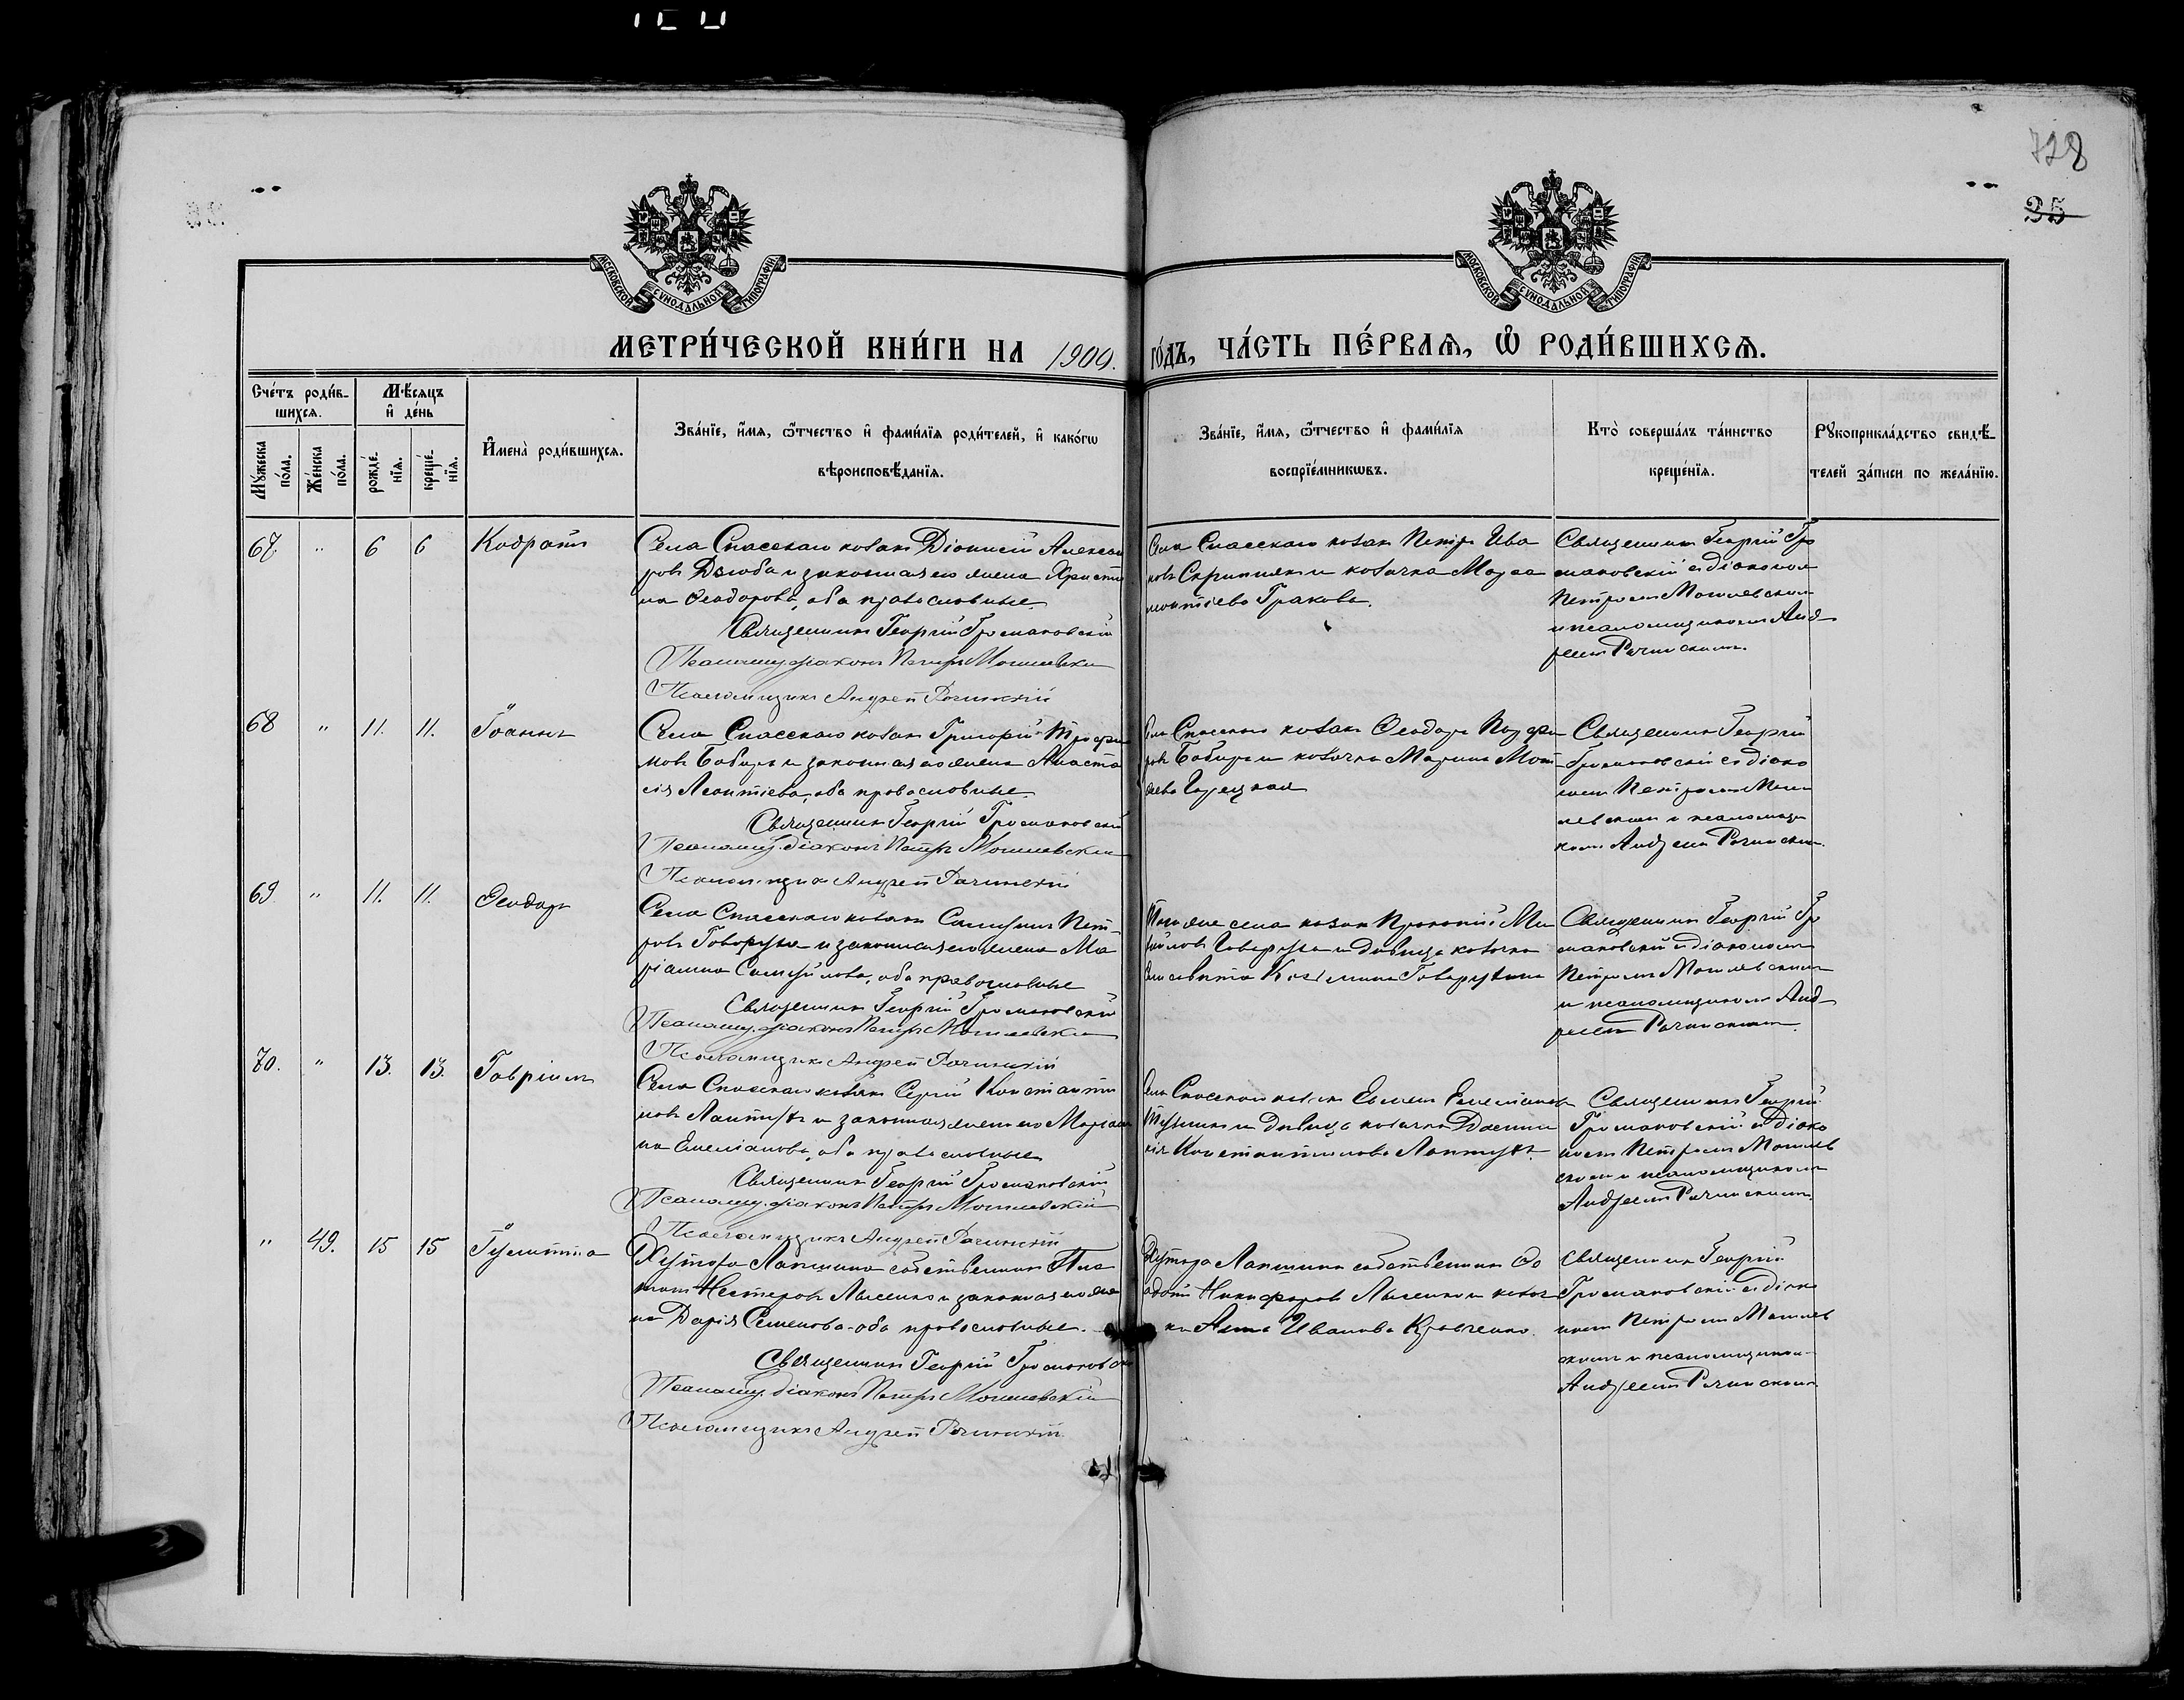 728
35
МОСКОВСКОЙ СѴНОДАЛЬНОЙ ТИПОГРАФІИ
МОСКОВСКОЙ СѴНОДАЛЬНОЙ ТИПОГРАФІИ
МЕТРИ́ЧЕСКОЙ КНИ́ГИ НА 1909. ГО́ДЪ, ЧА́СТЬ ПЕ́РВАѦ, Ѡ҆ РОДИ́ВШИХСѦ.
Счетъ роди́в-
шихсѧ.
Мѣ́сѧцъ
и҆ де́нь
Мꙋ́жеска по́ла.
Же́нска по́ла.
рожде́-
нїѧ.
креще́-
нїѧ.
И҆мена̀ роди́вшихсѧ.
Зва́нїе, и҆́мѧ, ѻ҆́тчество и҆ фами́лїѧ роди́телей, и҆ како́гѡ
вѣроисповѣ́данїѧ.
Зва́нїе, и҆́мѧ, ѻ҆́тчество и҆ фами́лїѧ
воспрїе́мникѡвъ.
Кто̀ соверша́лъ та́инство
креще́нїѧ.
Рꙋкоприкла́дство свидѣ́-
телей за́писи по жела́нїю.
67. " 6 6 Кодратъ
Села Спасскаго козакъ Діонисій Александ
ровъ Дзюба и законная его жена Христи
на Ѳеодорова, оба православные.
Священникъ Георгій Громаковскій
Псаломщ. діаконъ Петръ Могилевскій
Псаломщикъ Андрей Рачинскій
Села Спасскаго козакъ Петръ Ива
новъ Скрипникъ и козачка
Гракова.
Священникъ Георгій Гро
маковскій съ діакономъ
Петромъ Могилевскимъ
и псаломщикомъ Анд-
реемъ Рачинскимъ.
68 " 11. 11. Іоаннъ
Села Спасскаго козакъ Григорій Трофи
мовъ Бабырь и законная его жена Анаста
сія Леонтіева, оба православные.
Священникъ Георгій Громаковскій
Псаломщ. діаконъ Петръ Могилевскій
Псаломщикъ Андрей Рачинскій
Села Спасскаго козакъ Ѳеодоръ
ровъ Бабырь и козачка Марина Мат
ѳеева
Священникъ Георгій
Громаковскій съ діако
номъ Петромъ Моги
левскимъ и псаломщи
комъ Андреемъ Рачинскимъ.
69. " 11. 11. Ѳеодоръ
Села Спасскаго козакъ Самуилъ Пет-
ровъ Говоруха и законная его жена Ма
ріанна Самуилова, оба православные
Священникъ Георгій Громаковскій
Псаломщ. діаконъ Петръ Могилевскій
Псаломщикъ Андрей Рачинскій
Того же села козакъ Прокопій Ми
хайловъ Говоруха и дѣвица козачка
Елисавета Говорухина
Священникъ Георгій Гро
маковскій съ діакономъ
Петромъ Могилевскимъ
и псаломщикомъ Анд-
реемъ Рачинскимъ.
70. " 13. 13. Гавріилъ
Села Спасскаго козакъ Сергій Константи
новъ Лантухъ и законная жена его Маріан
на Емеліанова, оба православные
Священникъ Георгій Громаковскій
Псаломщ. діаконъ Петръ Могилевскій
Псаломщикъ Андрей Рачинскій
Села Спасскаго козакъ Емеліановъ
и дѣвица козачка
Константинова Лантухъ.
Священникъ Георгій
Громаковскій съ діако
номъ Петромъ Могилев
скимъ и псаломщикомъ
Андреемъ Рачинскимъ.
" 49. 15 15 Іулитта
Хутора Лапшина собственникъ Пла
тонъ Несторовъ Лысенко и законная его же
на Дарія Семенова-оба православные.
Священникъ Георгій Громаковскій
Псаломщ. діаконъ Петръ Могилевскій
Псаломщикъ Андрей Рачинскій
Хутора Лапшина собственникъ Ѳе
одотъ Никифоровъ Лысенко и козач
ка Анна Иванова Кравченко.
Священникъ Георгій
Громаковскій съ діако
номъ Петромъ Могилев
скимъ и псаломщикомъ
Андреемъ Рачинскимъ